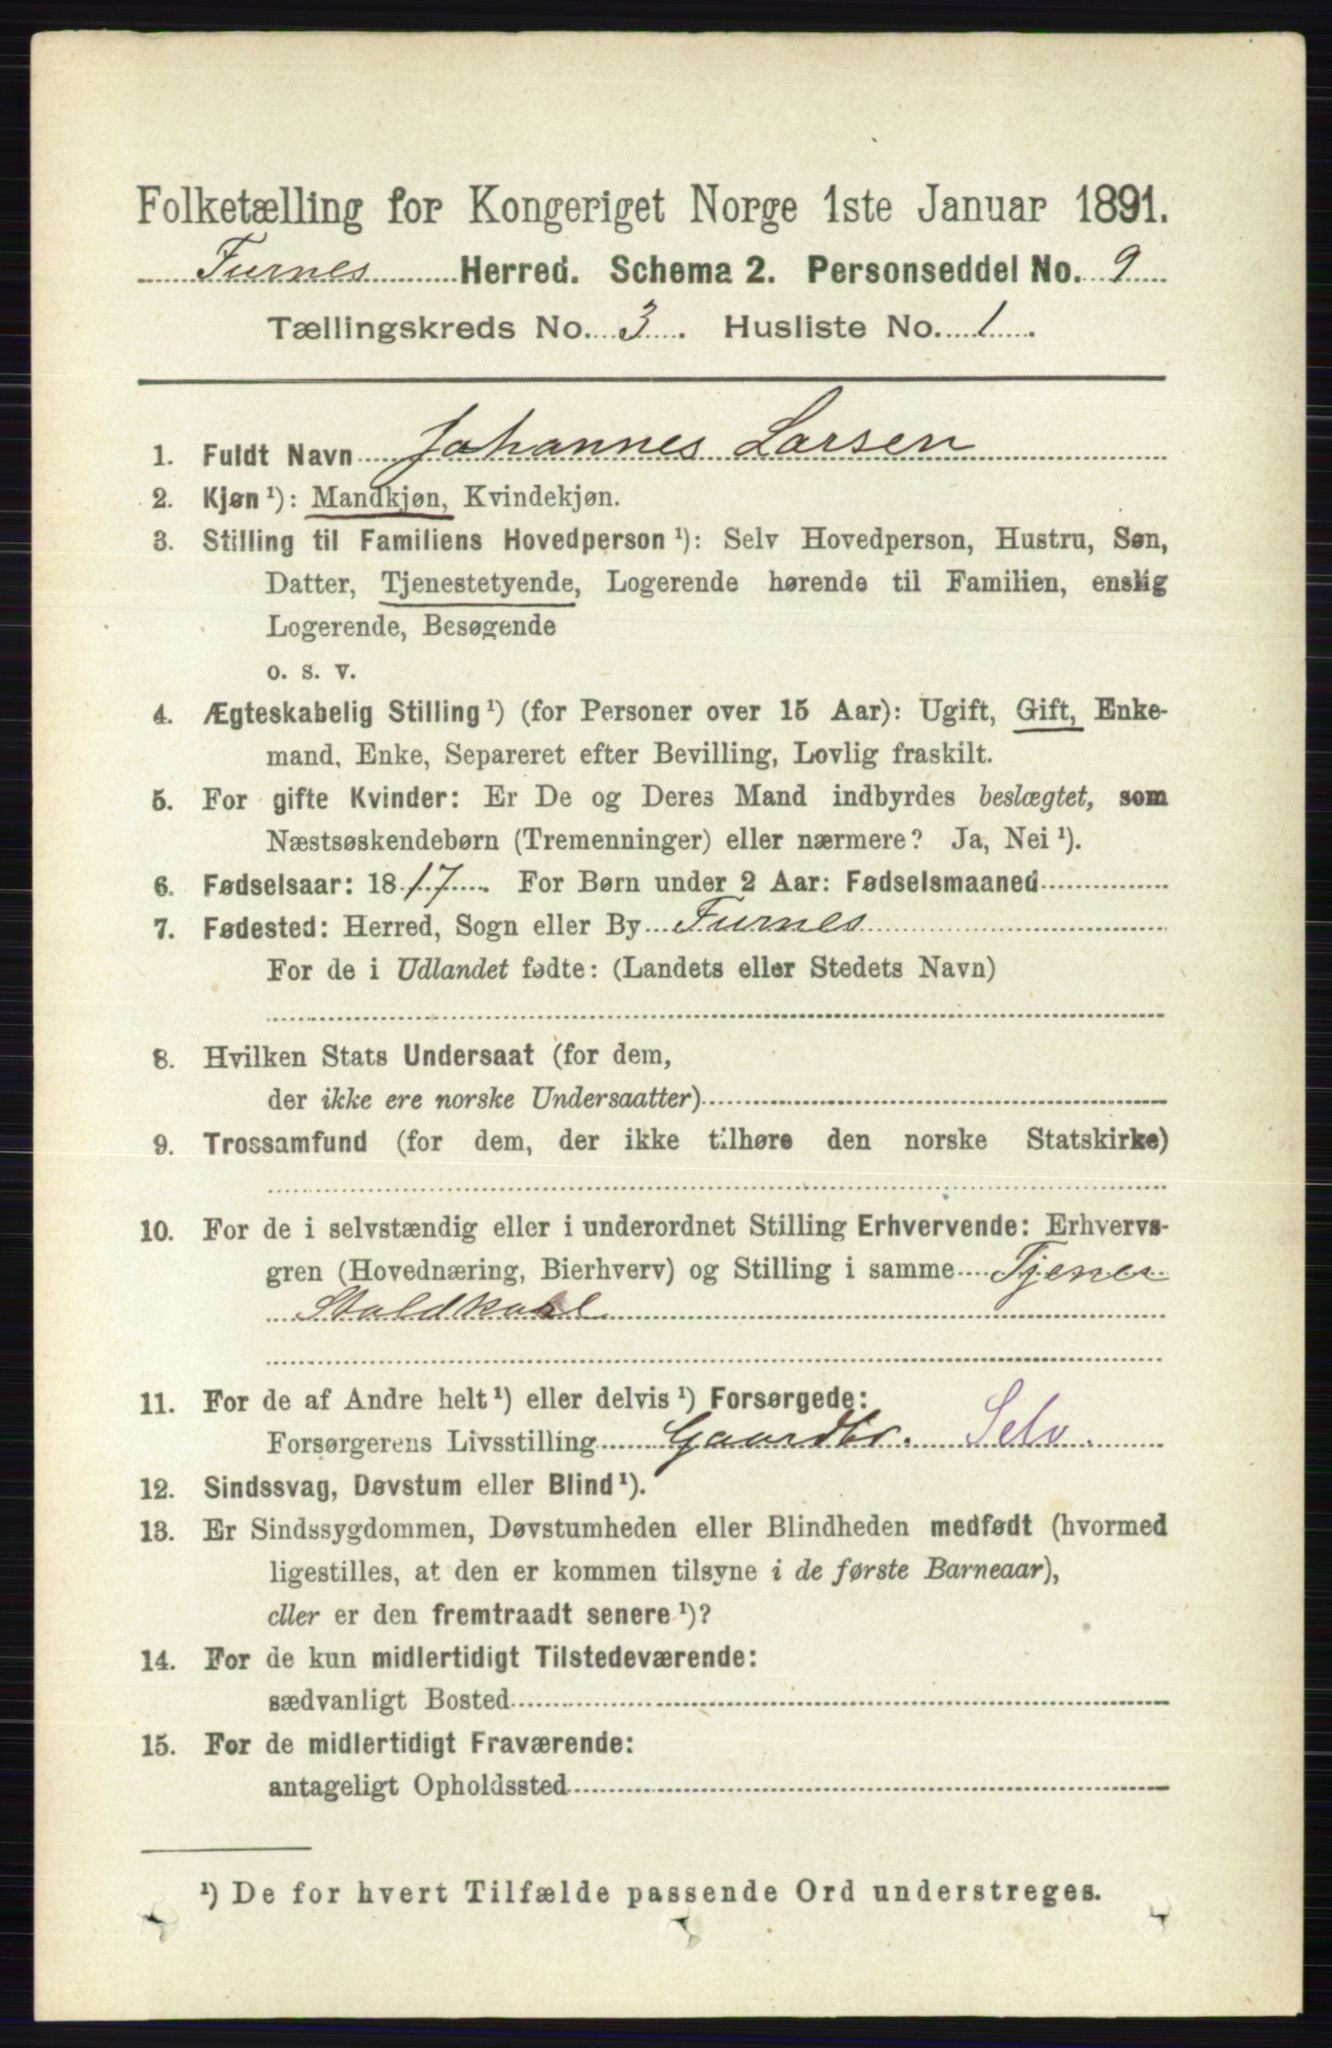 Folketælling for Kongeriget Norge 1ste Januar 1891.
Furnes Herred. Schema 2. Personseddel No. 9
Tællingskreds No. 3. Husliste No. 1.
1. Fuldt Navn Johannes Larsen
2. Kjøn ¹): Mandkjøn, Kvindekjøn.
3. Stilling til Familiens Hovedperson ¹): Selv Hovedperson, Hustru, Søn,
Datter, Tjenestetyende, Logerende hørende til Familien, enslig
Logerende, Besøgende
o. s. v.
4. Ægteskabelig Stilling ¹) (for Personer over 15 Aar): Ugift, Gift, Enke-
mand, Enke, Separeret efter Bevilling, Lovlig fraskilt.
5. For gifte Kvinder: Er De og Deres Mand indbyrdes beslægtet, som
Næstsøskendebørn (Tremenninger) eller nærmere? Ja, Nei ¹).
6. Fødselsaar: 1817. For Børn under 2 Aar: Fødselsmaaned
7. Fødested: Herred, Sogn eller By Furnes
For de i Udlandet fødte: (Landets eller Stedets Navn)
8. Hvilken Stats Undersaat (for dem,
der ikke ere norske Undersaatter)
9. Trossamfund (for dem, der ikke tilhøre den norske Statskirke)
10. For de i selvstændig eller i underordnet Stilling Erhvervende: Erhvervs-
gren (Hovednæring, Bierhverv) og Stilling i samme Tjener
Staldkarl
11. For de af Andre helt ¹) eller delvis ¹) Forsørgede:
Forsørgerens Livsstilling Gaardbr. Selv.
12. Sindssvag, Døvstum eller Blind ¹).
13. Er Sindssygdommen, Døvstumheden eller Blindheden medfødt (hvormed
ligestilles, at den er kommen tilsyne i de første Barneaar),
eller er den fremtraadt senere ¹)?
14. For de kun midlertidigt Tilstedeværende:
sædvanligt Bosted
15. For de midlertidigt Fraværende:
antageligt Opholdssted
¹) De for hvert Tilfælde passende Ord understreges.